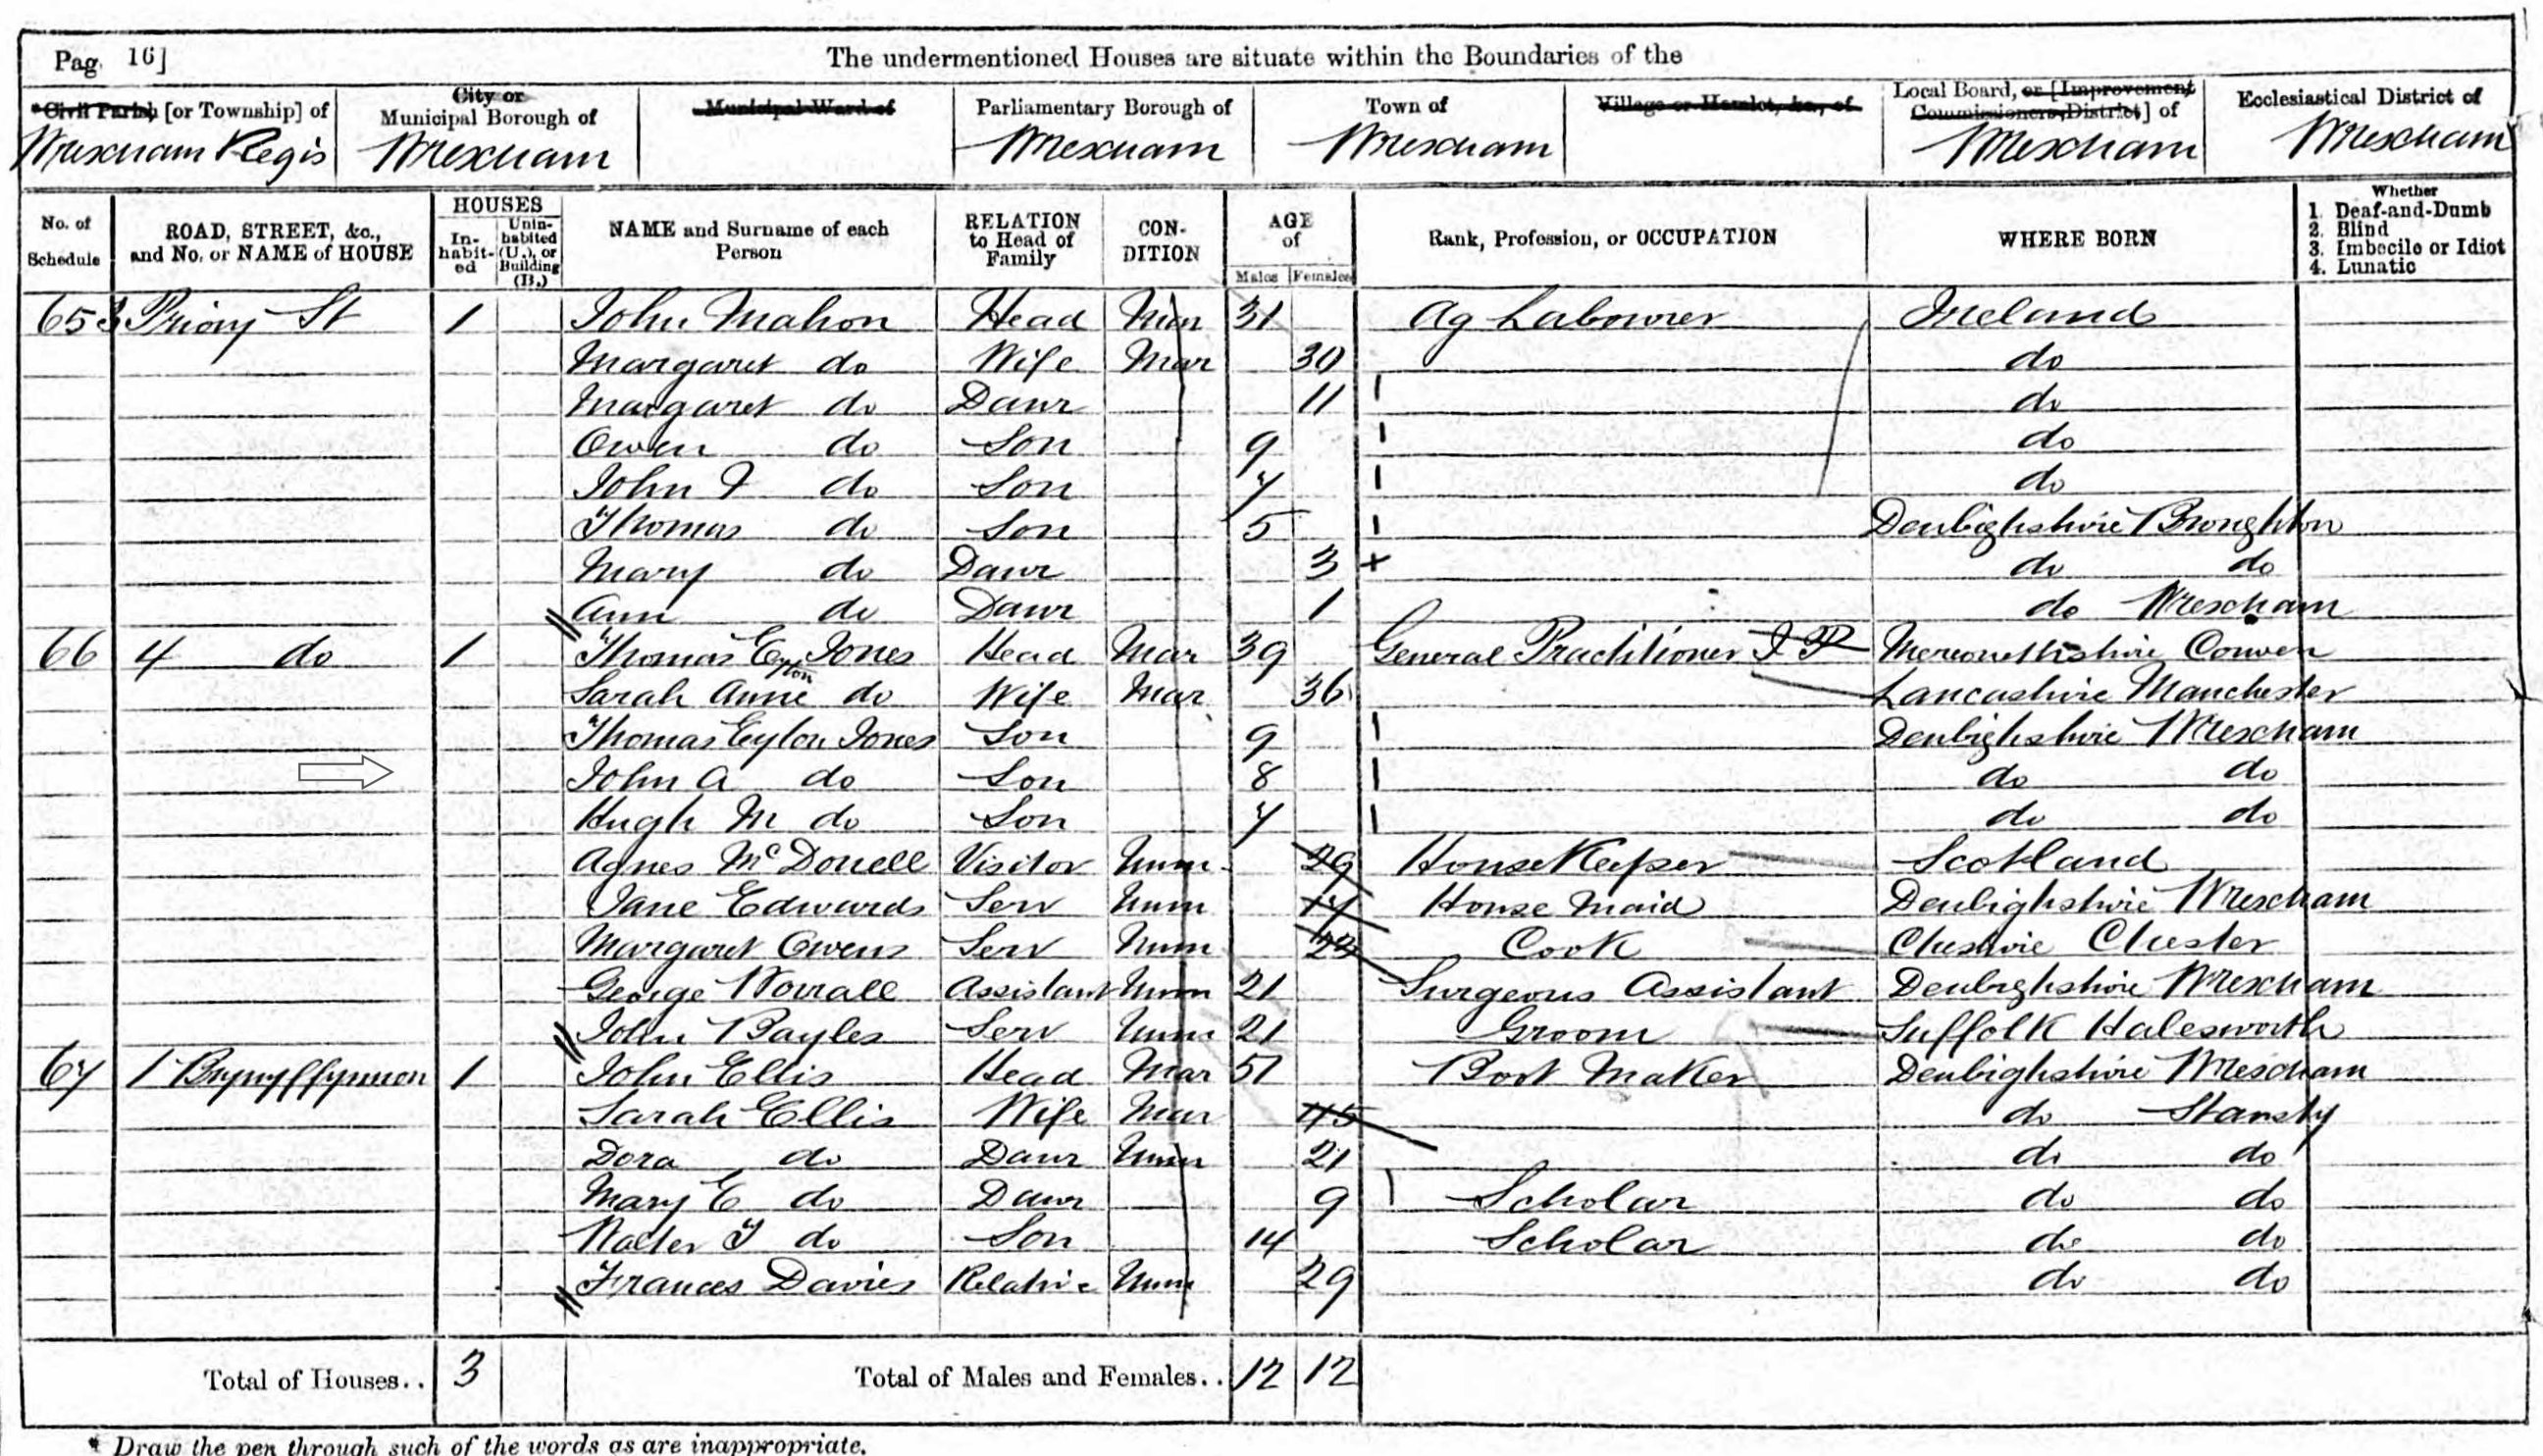 Pag. 16]
The undermentioned Houses are situate within the Boundaries of the
*Civil Parish [or Township] of
Wrexham Regis
City or Municipal Borough of
Wrexham
Municipal Ward of
Parliamentary Borough of
Wrexham
Town of
Wrexham
Village or Hamlet, &c., of
Local Board, or [Improvement Commissioners District] of
Wrexham
Ecclesiastical District of
Wrexham
No. of Schedule
ROAD, STREET, &c., and No. or NAME of HOUSE
HOUSES
In-habit-ed
Unin-habited (U.), or Building (B.)
NAME and Surname of each Person
RELATION to Head of Family
CON-DITION
AGE of
Males Females
Rank, Profession, or OCCUPATION
WHERE BORN
Whether
1. Deaf-and-Dumb
2. Blind
3. Imbecile or Idiot
4. Lunatic
65 3 Priory St 1 John Mahon Head Mar 31 Ag Labourer Ireland
Margaret do Wife Mar 30 do
Margaret do Daur 11 do
Owen do Son 9 do
John do Son 7 do
Thomas do Son 5 Denbighshire Broughton
Mary do Daur 3 do do
Ann do Daur 1 do Wrexham
66 4 do 1 Thomas Eyton Jones Head Mar 39 General Practitioner Merionethshire Corwen
Sarah Anne do Wife Mar 36 Lancashire Manchester
Thomas Eyton Jones Son 9 Denbighshire Wrexham
John A do Son 8 do do
Hugh M do Son 7 do do
Agnes McDonell Visitor Unm 29 HouseKeeper Scotland
Jane Edwards Serv Unm 17 House Maid Denbighshire Wrexham
Margaret Owens Serv Unm 23 Cook Cheshire Chester
George Worrall Assistant Unm 21 Surgeons Assistant Denbighshire Wrexham
John Bayles Serv Unm 21 Groom Suffolk Halesworth
67 1 Brynyffynnon 1 John Ellis Head Mar 51 Boot Maker Denbighshire Wrexham
Sarah Ellis Wife Mar 45 do Stansty
Dora do Daur Unm 21 do do
Mary E do Daur 9 Scholar do do
Walter J do Son 14 Scholar do do
Frances Davies Relative Unm 29 do do
Total of Houses.. 3 Total of Males and Females.. 12 12
* Draw the pen through such of the words as are inappropriate.